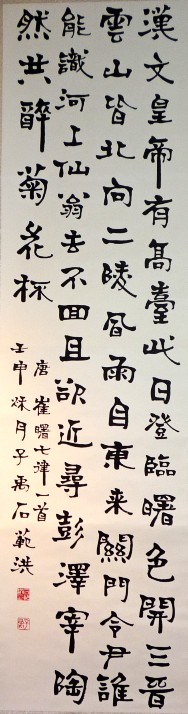 漢文皇帝有髙臺此日登臨曙色開三晉
雲山皆北向二陵風雨自東来關門令尹誰
能識河上仙翁去不回且欲近尋彭澤宰陶
然共醉菊花杯
唐崔曙七律一首
壬申秋月子禹石範洪